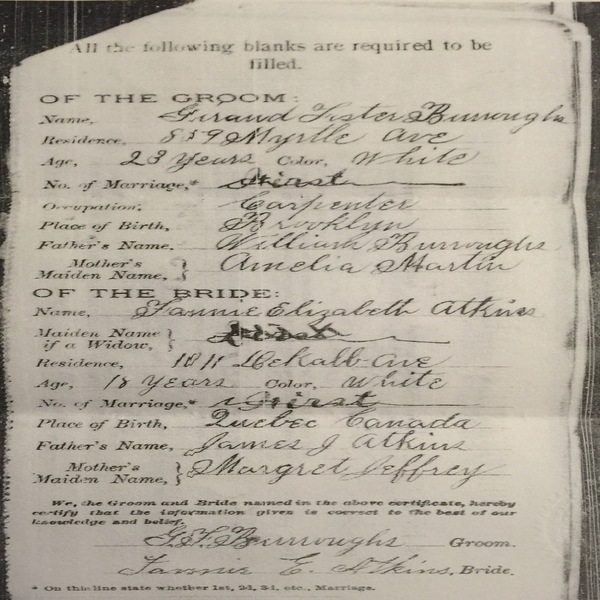 All the following blanks are required to be
filled.
OF THE GROOM:
Name, Geraud Foster Burroughs
Residence, 859 Myrtle Ave
Age, 23 Years Color, White
No. of Marriage,* First
Occupation, Carpenter
Place of Birth, Brooklyn
Father's Name, William Burroughs
Mother's Maiden Name, } Amelia Martin
OF THE BRIDE:
Name, Fannie Elizabeth Atkins
Maiden Name if a Widow, }
Residence, 1011 DeKalb Ave
Age, 18 Years Color, White
No. of Marriage,* First
Place of Birth, Quebec Canada
Father's Name, James J Atkins
Mother's Maiden Name, } Margret Jeffrey
We, the Groom and Bride named in the above certificate, hereby
certify that the information given is correct to the best of our
knowledge and belief.
G. F. Burroughs Groom.
Fannie E. Atkins, Bride.
* On this line state whether 1st, 2d, 3d, etc., Marriage.